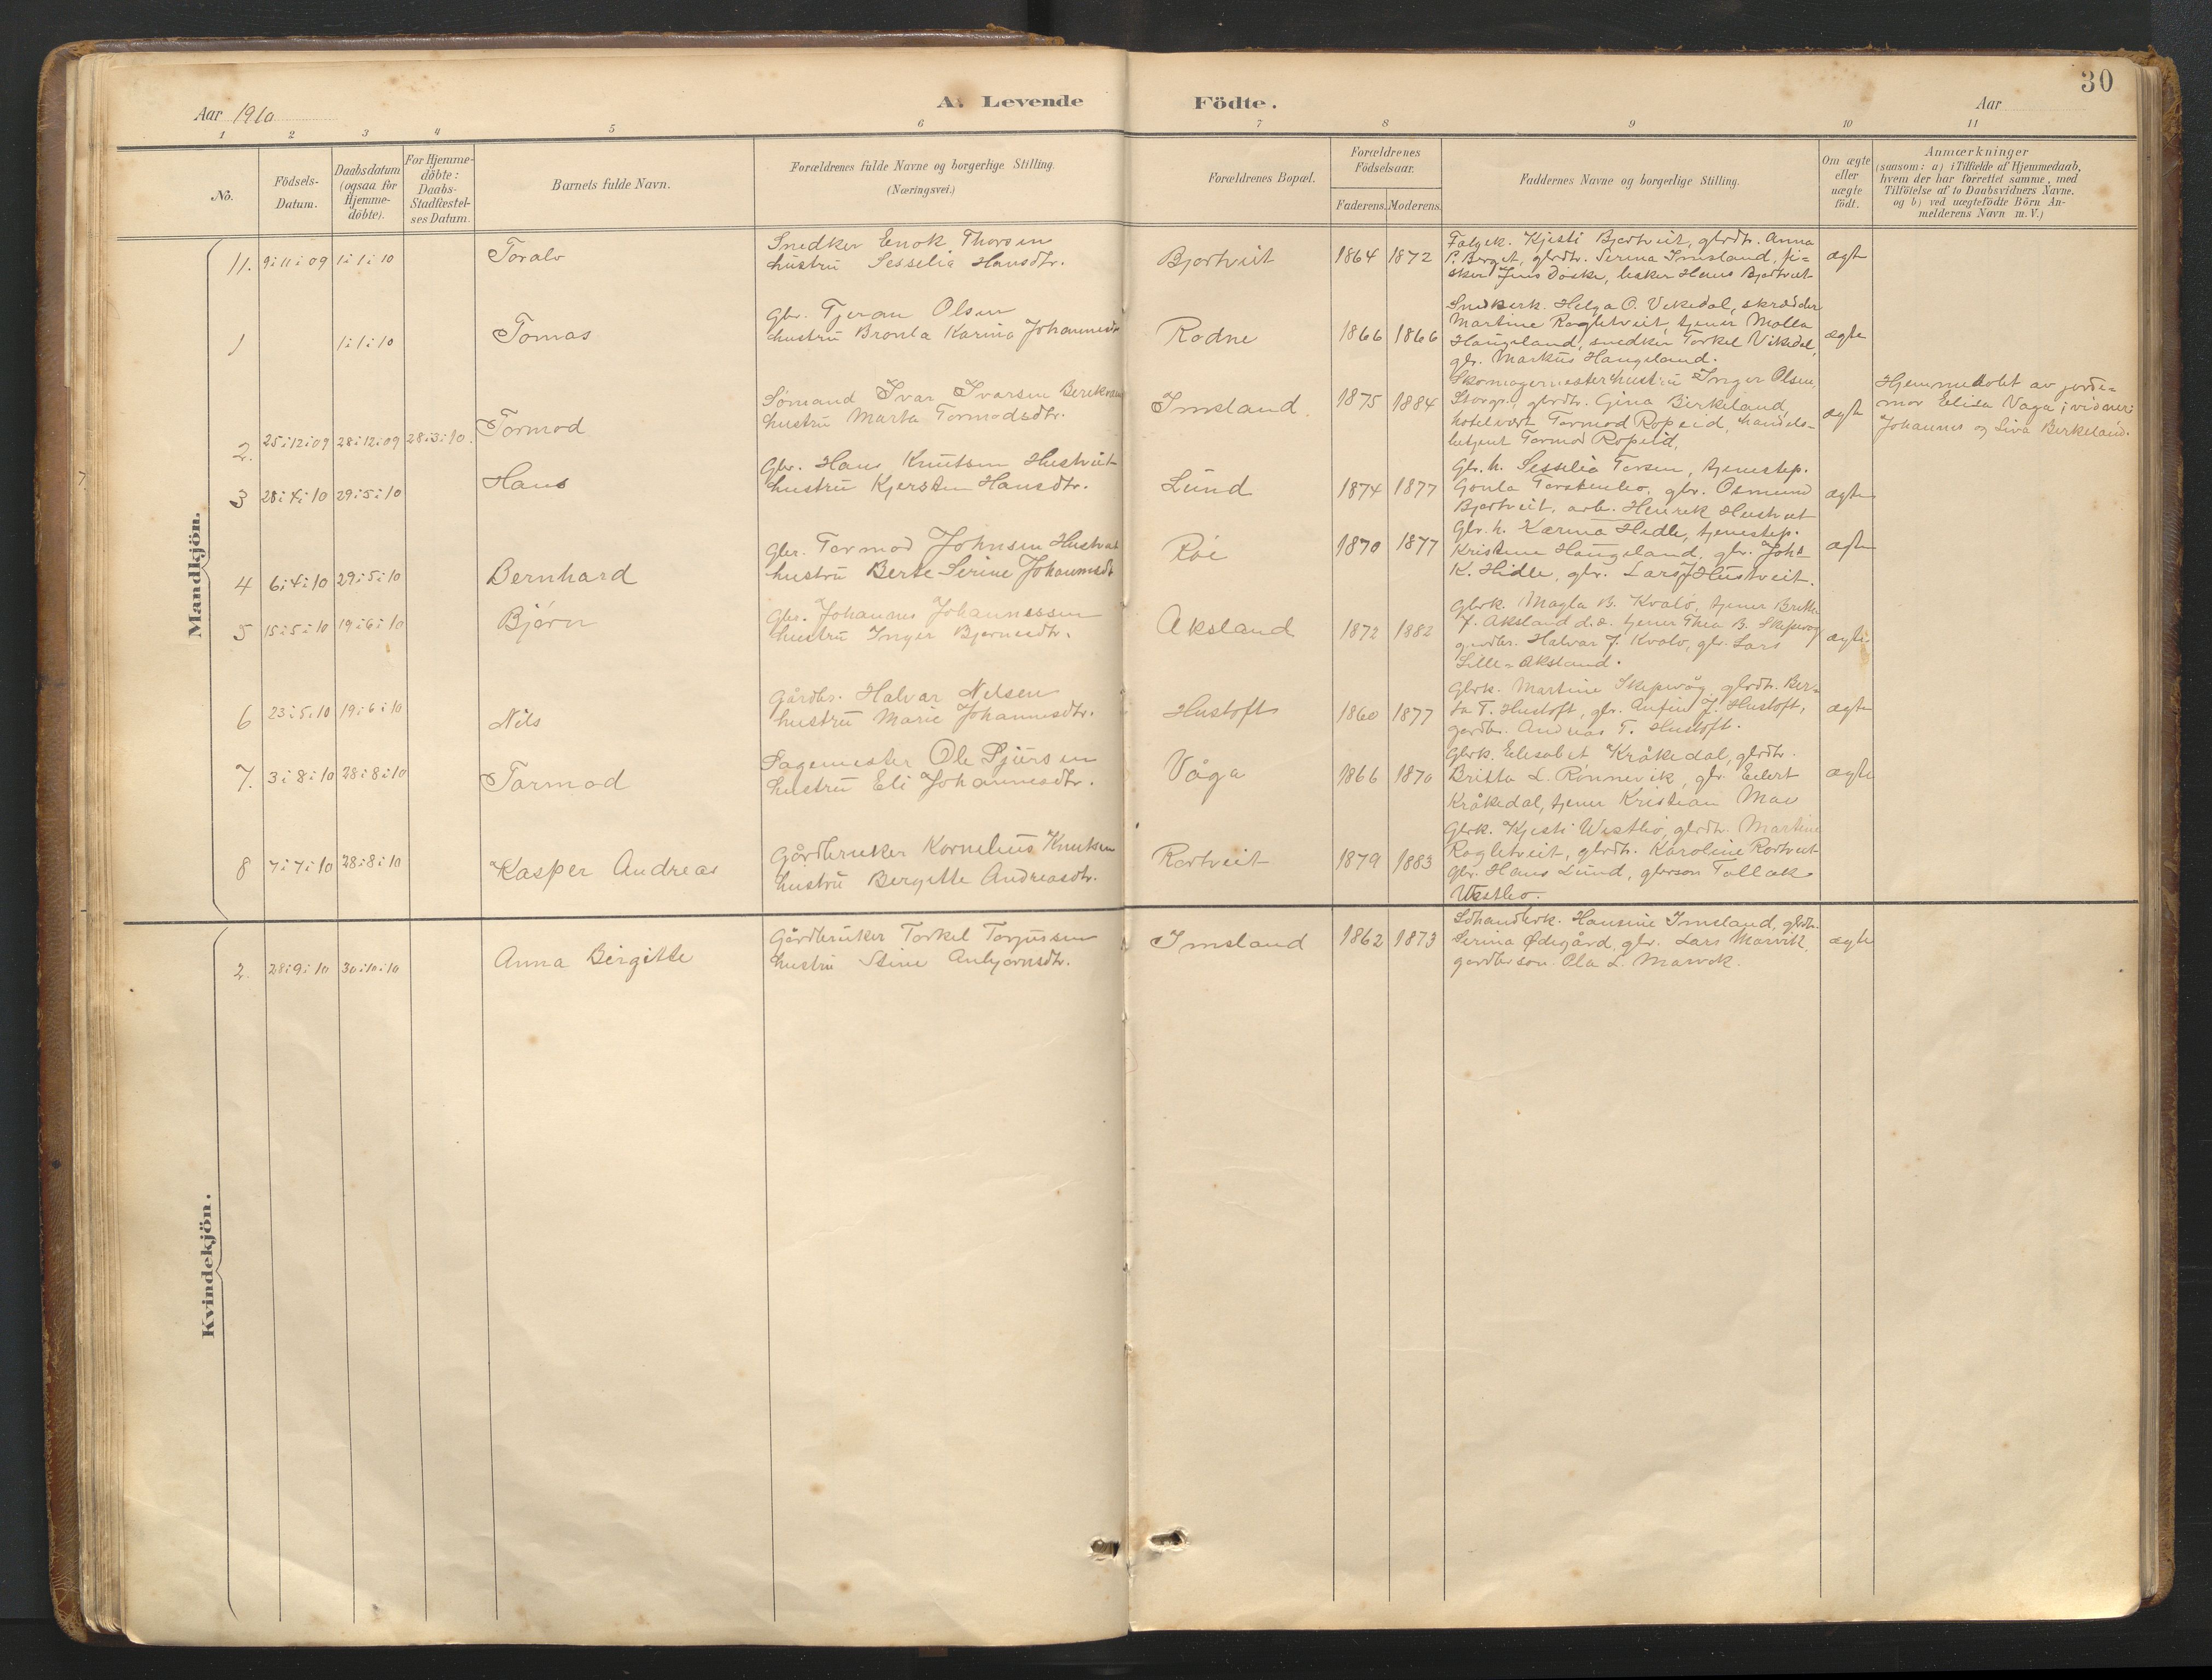 30
Aar 1910
A. Levende Födte.
Aar
1 2 3 4 5 6 7 8 9 10 11
No.
Födsels-
Datum.
Daabsdatum
(ogsaa for
Hjemme-
döbte).
For Hjemme-
döbte:
Daabs-
Stadfæstel-
ses Datum.
Barnets fulde Navn.
Forældrenes fulde Navne og borgerlige Stilling.
(Næringsvei.)
Forældrenes Bopæl.
Forældrenes
Födselsaar.
Faderens. Moderens.
Faddernes Navne og borgerlige Stilling.
Om ægte
eller
uægte
födt.
Anmærkninger
(saasom: a) i Tilfælde af Hjemmedaab,
hvem der har forrettet samme, med
Tilföielse af to Daabsvidners Navne.
og b) ved uægtefödte Börn An-
melderens Navn m. V.)
Mandkjön.
11. 9:11:09 1:1:10 Toralv
Snedker Enok Thorsen
hustru Sesselia Hansdtr.
Bjortveit 1864 1872
Kjesti Bjortveit, gbrdtr. Anna
P. Berget, gbrdtr. Serina Imsland, fi-
sker Jens Døske, Hans Bjortveit
ægt
1 1:1:10 Tomas
Gbr. Tjeran Olsen
hustru Bronla Karina Johannesdtr
Rodne 1866 1866
Snedkerk. Helga O. Vikedal, skrædder
Martine Rogletveit, tjener Malla
Haugeland, snedker Torkel Vikedal,
gbr. Markus Haugeland.
ægte
2. 25:12:09 28:12:09 28:3:10. Tormod
Sømand Ivar Ivarsen
hustru Marta Tormodsdtr.
Imsland. 1875 1884
Skomagermesterhustru Inger Olsen,
Storgr., gbrdtr. Gina Birkeland,
hotelvert Tormod Ropeid, handels-
betjent Tormod Ropeid,
ægt
Hjemmedøbt av jorde-
mor Elisa Vaga; vidner:
Johannes og Liva Birkeland.
3 28:4:10 29:5:10 Hans
Gbr. Hans Knutsen Hustveit
hustru Kjersten Hansdtr.
Lund 1874 1877
Gbr. h. Sesselia Torsen, tjenestep.
Gonla Torstenbø, gbr. Osmund
Bjortveit, arb. Henrik Hustveit
ægte
4 6:4:10 29:5:10 Bernhard
Gbr. Tormod Johnsen Hustveit
hustru Berte Serine Johannesdtr
Røe 1870 1877
Gbr. h. Karina Hidle, tjenestep.
Kristine Haugeland, gbr. Joh.
K. Hidle, gbr. Lars J Hustveit.
ægte
5 15:5:10 19:6:10 Bjørn
Gbr. Johannes Johannessen
hustru Inger Bjørnesdtr.
Aksland 1872 1882
Gbrk. Magla B. Kvalø, tjener Britha
J. Aksland d.æ. tjener Thea B. Skipevåg
gårdbr. Halvar J. Kvalø, gbr. Lars
Lille-Aksland.
ægte
6 23:5:10 19:6:10 Nils
Gårdbr. Halvar Nelsen
hustru Marie Johannesdtr.
Hustoft 1860 1877
Gbrk. Martine Skipevåg, gbrdtr. Ber-
ta T. Hustoft, gbr. Anfin J. Hustoft,
gardbr. Andreas T. Hustoft.
ægte
7. 3:8:10 28:8:10 Tormod
Sagemester Ole Sjursen
hustru Eli Johannesdtr.
Våga 1866 1870
Gbrk. Elisabet Kråkedal, gbrdtr.
Britta L. Rønnevik, gbr. Eilert
Kråkedal, tjener Kristian Mæ
ægte
8 7:7:10 28:8:10 Kasper Andreas
Gårdbruker Kornelius Knutsen
hustru Bergitte Andreasdtr.
Rortveit 1879 1883
Gbrk. Kjesti Westbø, gbrdtr. Martine
Rogletveit, gbrdtr. Karoline Rortveit
gbr. Hans Lund, gbrson Tollak
Westbø.
Kvindekjön.
2. 28:9:10 30:10:10 Anna Birgitte
Gårdbruker Torkel Torjussen
hustru Stine Anbjørnsdtr.
Imsland 1862 1873
Ldhandlerk. Hansine Imsland, gbrdtr.
Serina Ødegård, gbr. Lars Marvik,
gardbrson Ola L. Marvik.
ægte